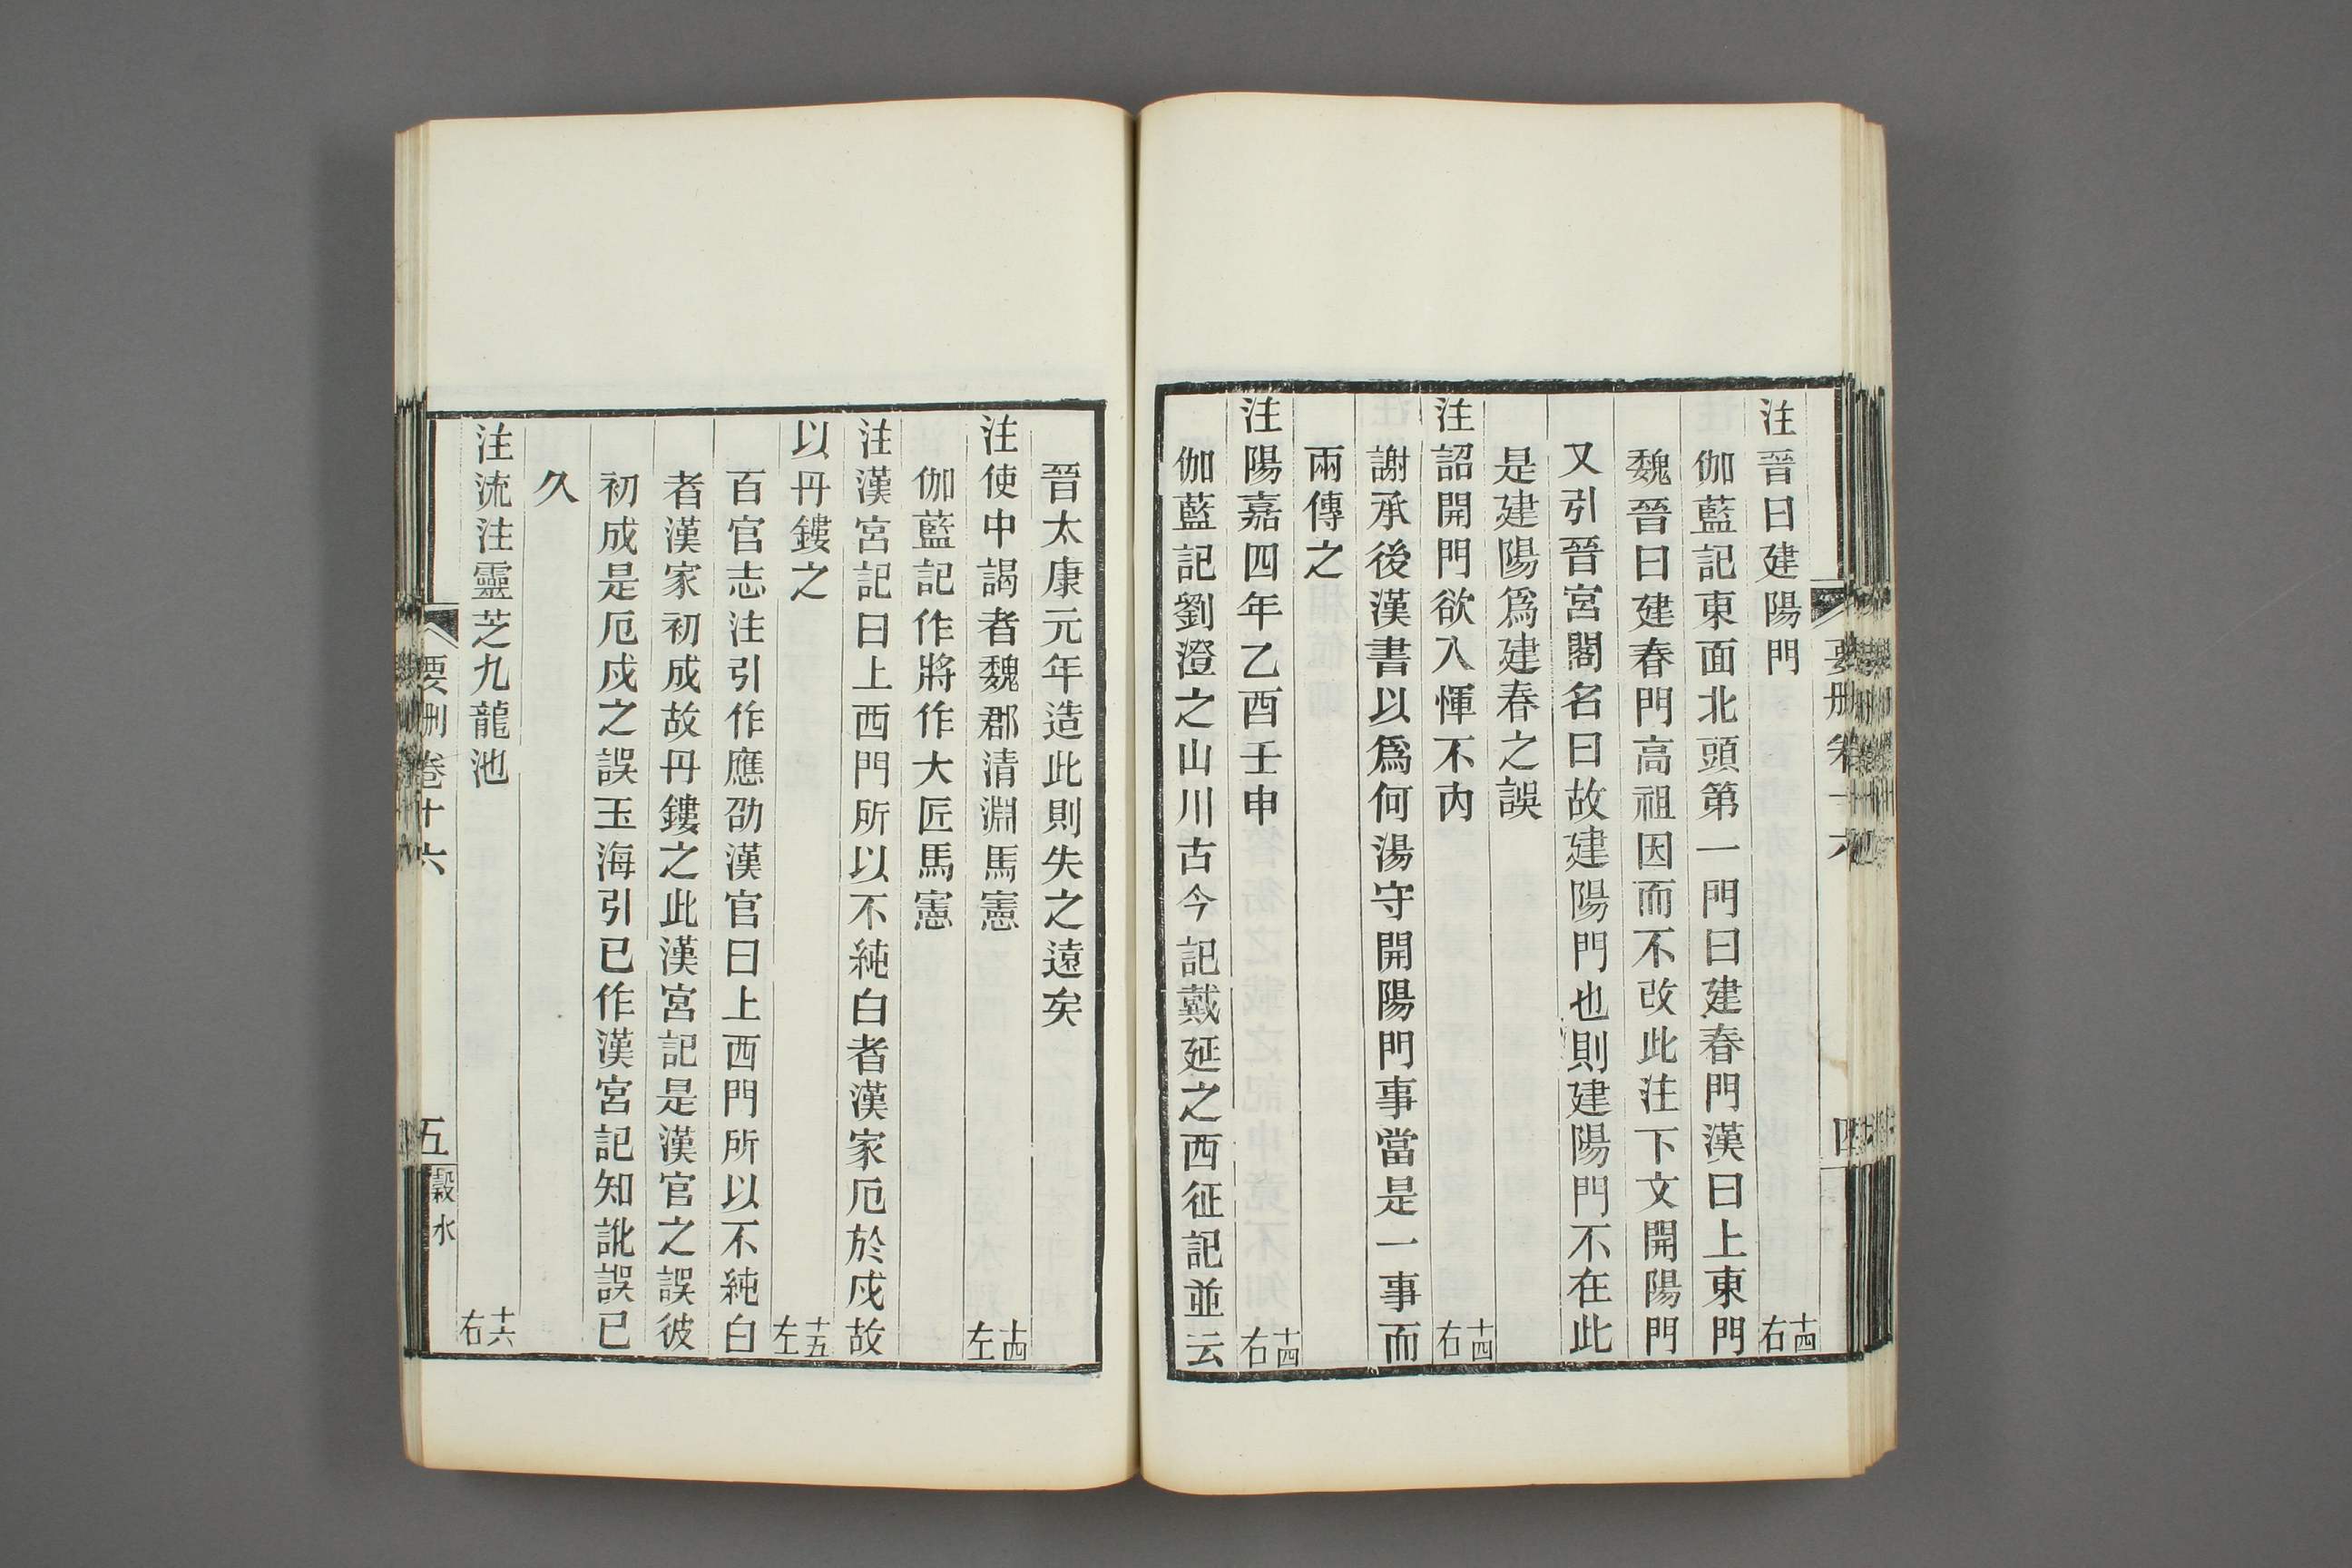 注晉曰建陽門 十四右
伽藍記東面北頭第一門曰建春門漢曰上東門
魏晉曰建春門高祖因而不改此注下文開陽門
又引晉宮閣名曰故建陽門也則建陽門不在此
是建陽爲建春之誤
注詔開門欲入惲不內 十四右
謝承後漢書以爲何湯守開陽門事當是一事而
兩傳之
注陽嘉四年乙酉壬申 十四右
伽藍記劉澄之山川古今記戴延之西征記並云
要刪卷十六 四
晉太康元年造此則失之遠矣
注使中謁者魏郡清淵馬憲 十四左
伽藍記作將作大匠馬憲
注漢宮記曰上西門所以不純白者漢家厄於戍故
以丹鏤之 十五左
百官志注引作應劭漢官曰上西門所以不純白
者漢家初成故丹鏤之此漢宮記是漢官之誤彼
初成是厄戍之誤玉海引已作漢宮記知訛誤已
久
注流注靈芝九龍池 十六右
要刪卷十六 五 穀水